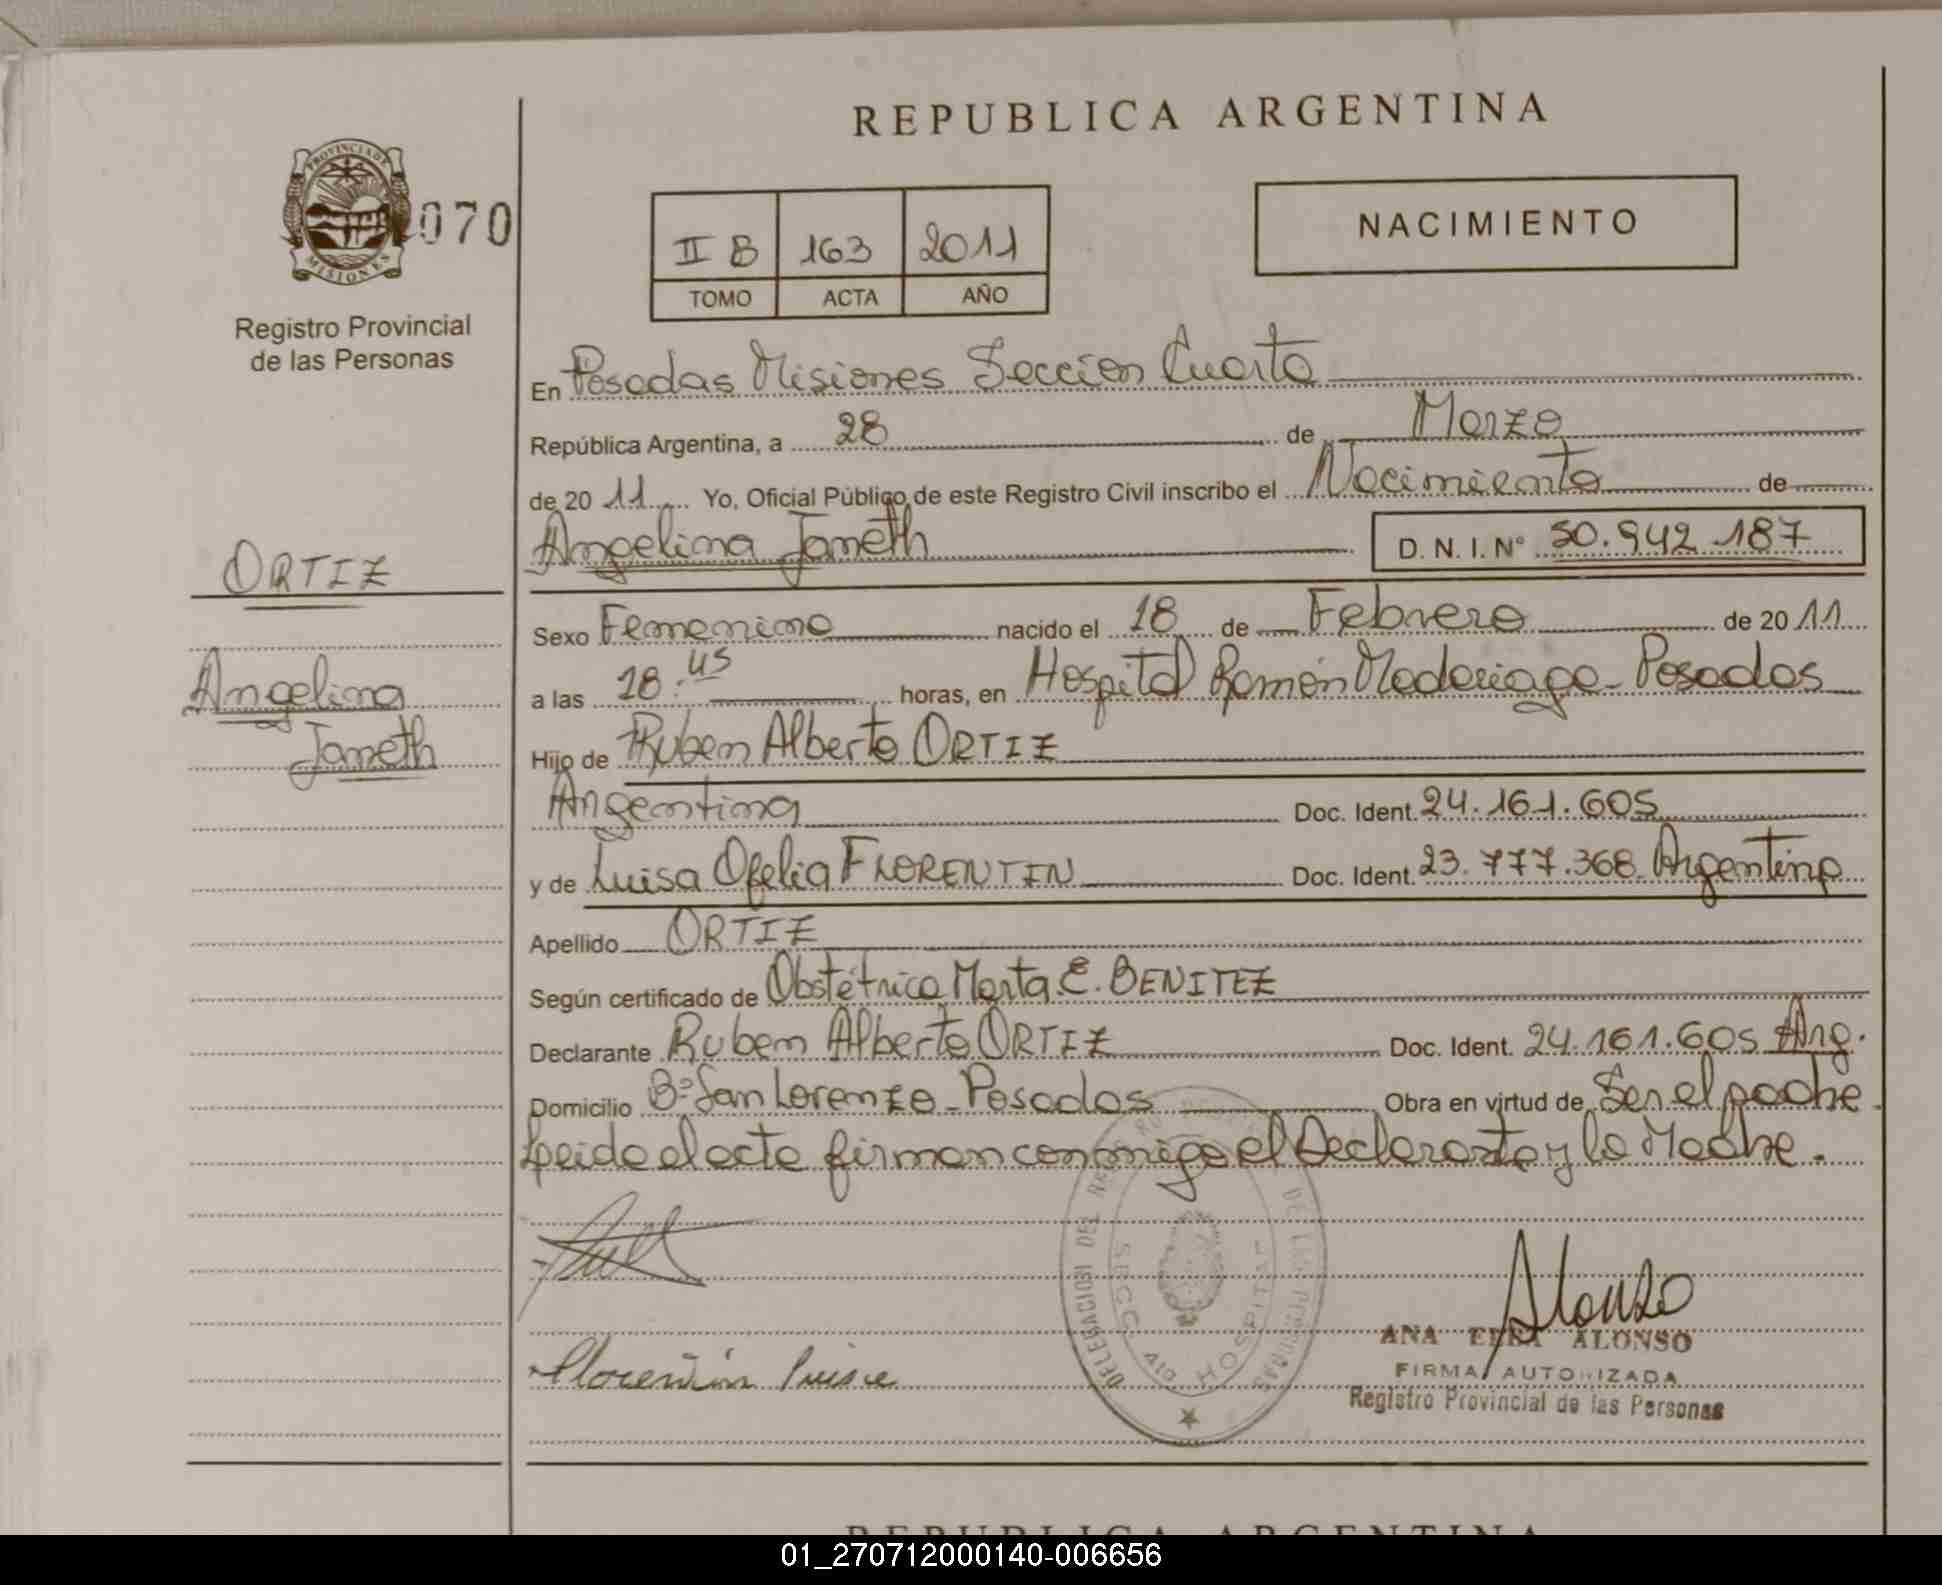 REPUBLICA ARGENTINA
PROVINCIA DE
MISIONES
070
Registro Provincial
de las Personas
II B 163 2011
TOMO ACTA AÑO
NACIMIENTO
En Posadas Misiones Seccion Cuarta
República Argentina, a 28 de Marzo
de 20 11 Yo, Oficial Público de este Registro Civil inscribo el Nacimiento de
Angelina Janeth D. N. I. Nº 50.942.187
ORTIZ
Angelina
Janeth
Sexo Femenino nacido el 18 de Febrero de 20 11
a las 18:45 horas, en Hospital Ramón Madariaga - Posadas
Hijo de Ruben Alberto ORTIZ
Argentina Doc. Ident. 24.161.605
y de Luisa Ofelia FLORENTIN Doc. Ident. 23.777.368 Argentina
Apellido ORTIZ
Según certificado de Obstétrica Marta E. BENITEZ
Declarante Ruben Alberto ORTIZ Doc. Ident. 24.161.605 Arg.
Domicilio Bº San Lorenzo - Posadas Obra en virtud de Ser el padre.
Leida el acta firman conmigo el Declarante y la Madre.
DE LAS PERSONAS
SECC. 4ta HOSPITAL
Florentin Luisa
Alonso
ANA ALONSO
FIRMA AUTORIZADA
Registro Provincial de las Personas
REPUBLICA ARGENTINA
01_270712000140-006656